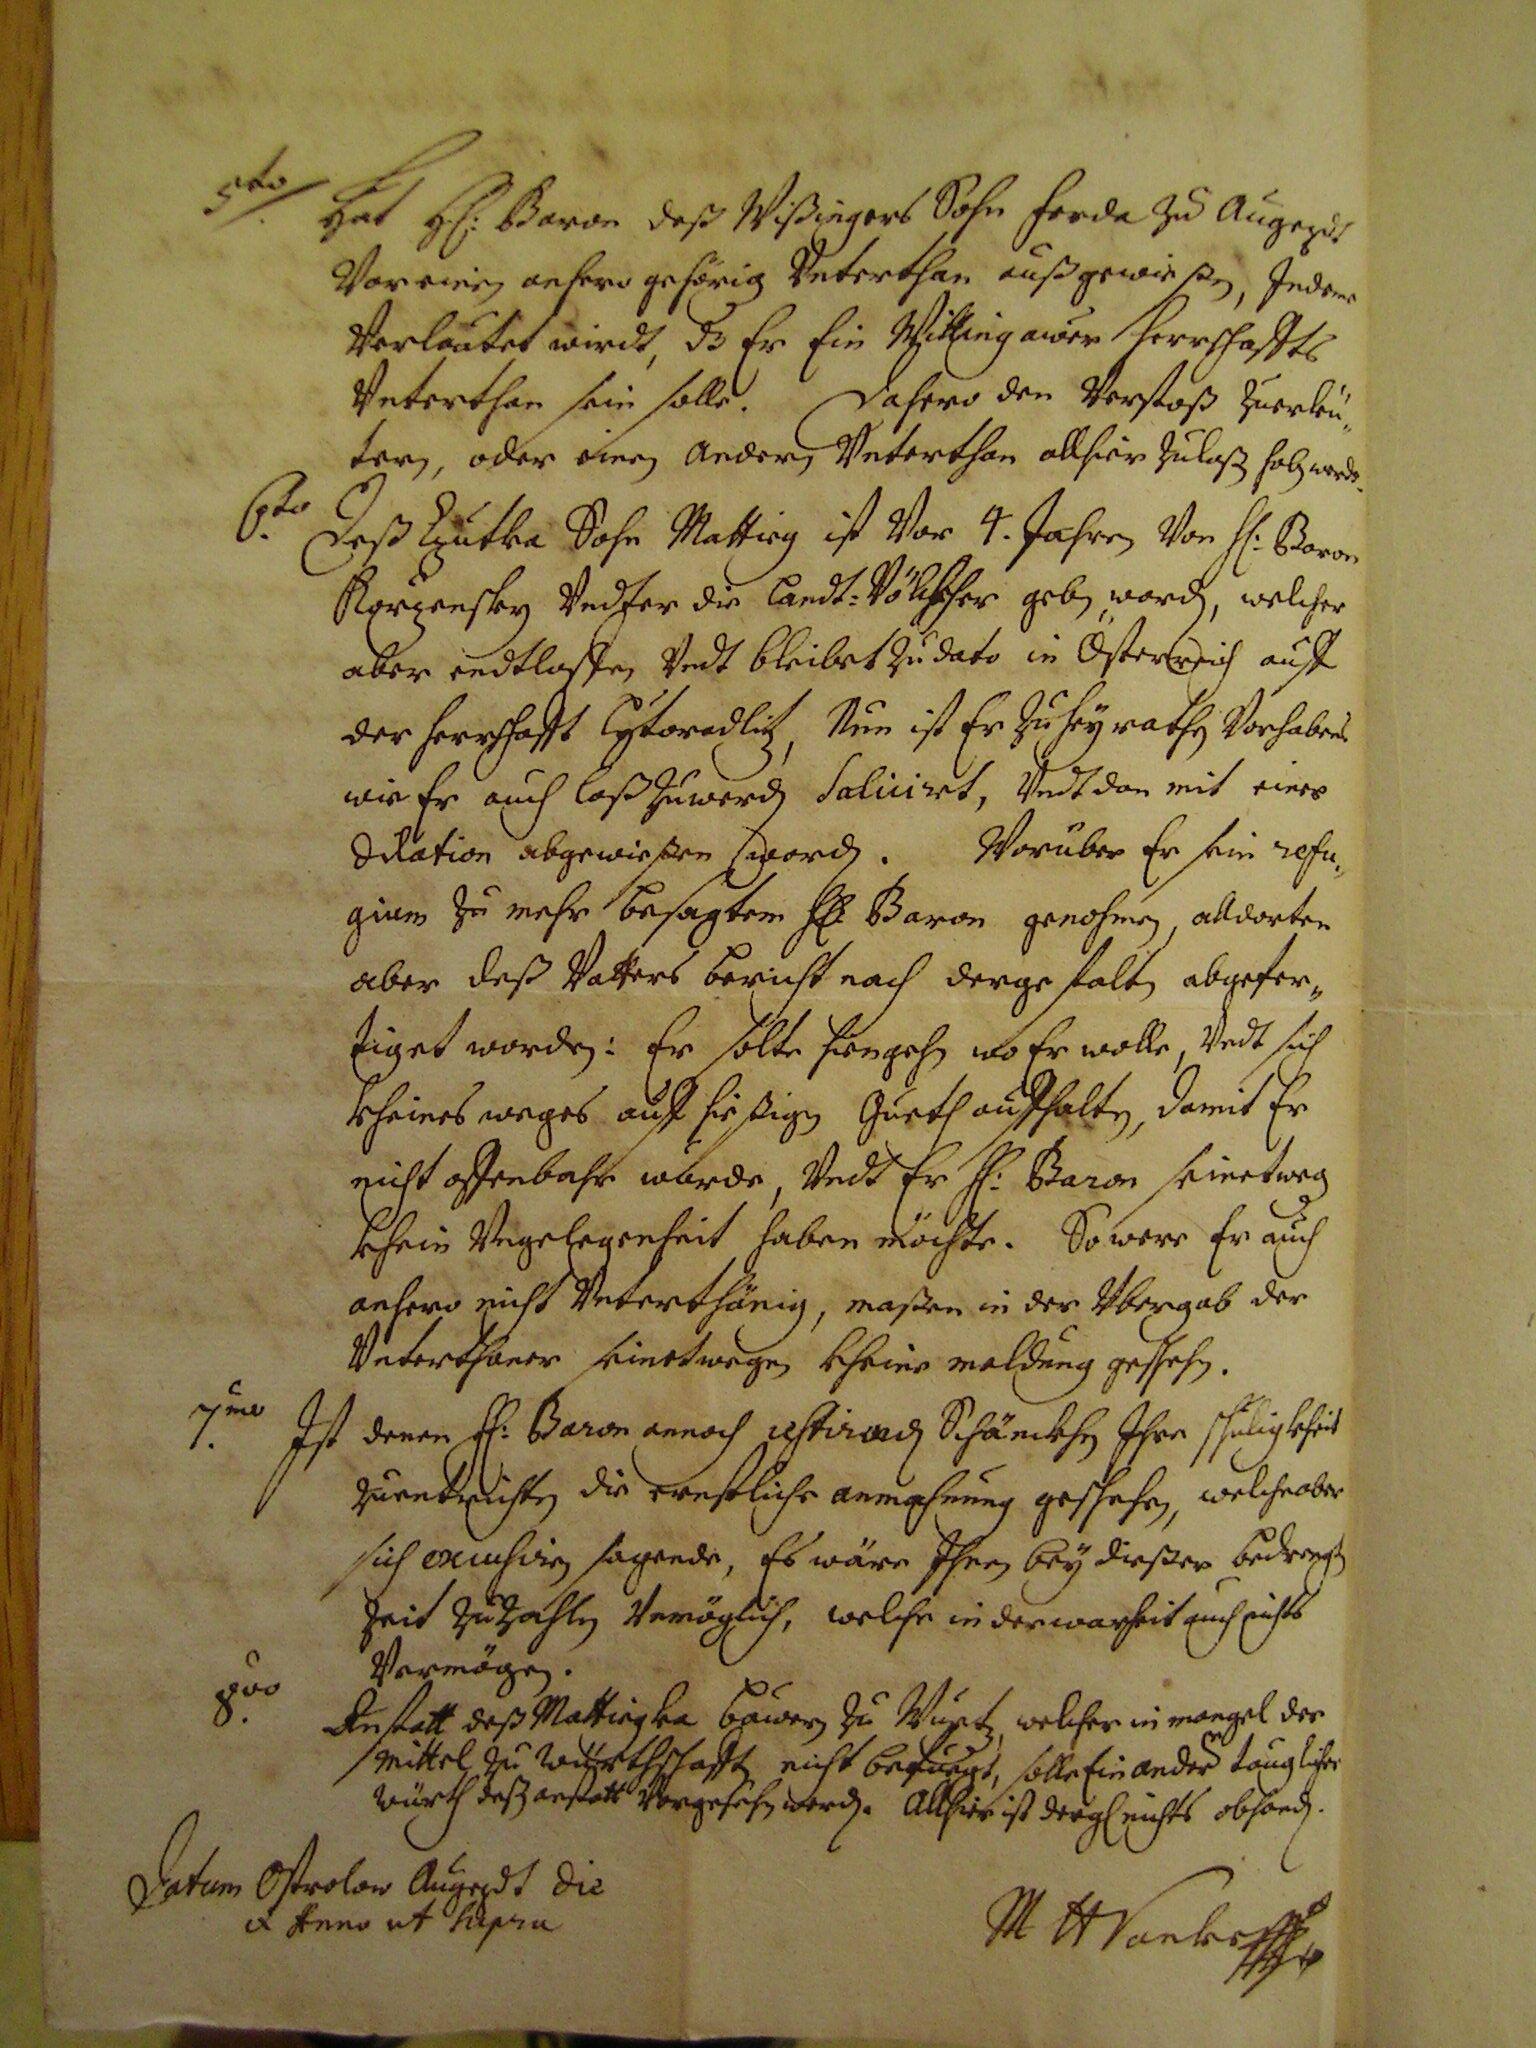 5to/. Hat H: Baron deß Wißingers Sohn Ferda zu Augezdt
Vor einen anhero gehörig Unterthan außgewießen, Indeme
Verlautet wirdt, dz Er Ein Wittingawer Herrschaffts
Unterthan sein solle. Dahero den Verstoß zuerleü„
tern, oder einen andern Unterthan allhier zulaß haben werde.
6to. Deß Sohn Mattieg ist Vor 4. Jahren Von H: Baron
Korzensky Undter die Landt-Völckher geben word, welcher
aber endtloffen Undt bleibet zu dato in Österreich auff
der Herrschafft, Nun ist Er zu heyrathen Vorhabens
wie Er auch loß zuwerd Solicirt, Undt dan mit einer
Dilation abgewießen word. Worüber Er sein refu„
gium zu mehr besagtem H: Baron genohmen, alldorten
aber deß Vatters bericht nach dergestalten abgefer„
tiget worden: Er solte hiengehn wo Er wolle, Undt sich
kheines weges auff hießigen Gueth auffhalten, damit Er
nicht offenbahr würde, Undt Er H: Baron seinetweg
khein Ungelegenheit haben möchte. So were Er auch
anhero nicht Unterthänig, maßen in der Ubergab der
Unterthaner seinetwegen kheine meldung geschehn.
7mo. Ist denen H: Baron annoch restirend Schänckhen Ihre schuligkheit
zuentrichten die ernstliche anmahnung geschehen, welche aber
sich excusiren sagende, Es wäre Ihnen bey dießer bedrengten
Zeit zu zahlen Unmöglich, welche in der warheit auch nichts
Vermögen.
8vo. Anstatt deß Mattiegka bawern zu, welcher in mangel der
mittel zu würthschafften nicht befuegt, solle Ein ander tauglicher
würth deß anstatt Vorgesehen werd. Allhier ist dergl nichts obhand.
Datum Ostrolow Augezdt die
et Anno ut supra
M H Vanke